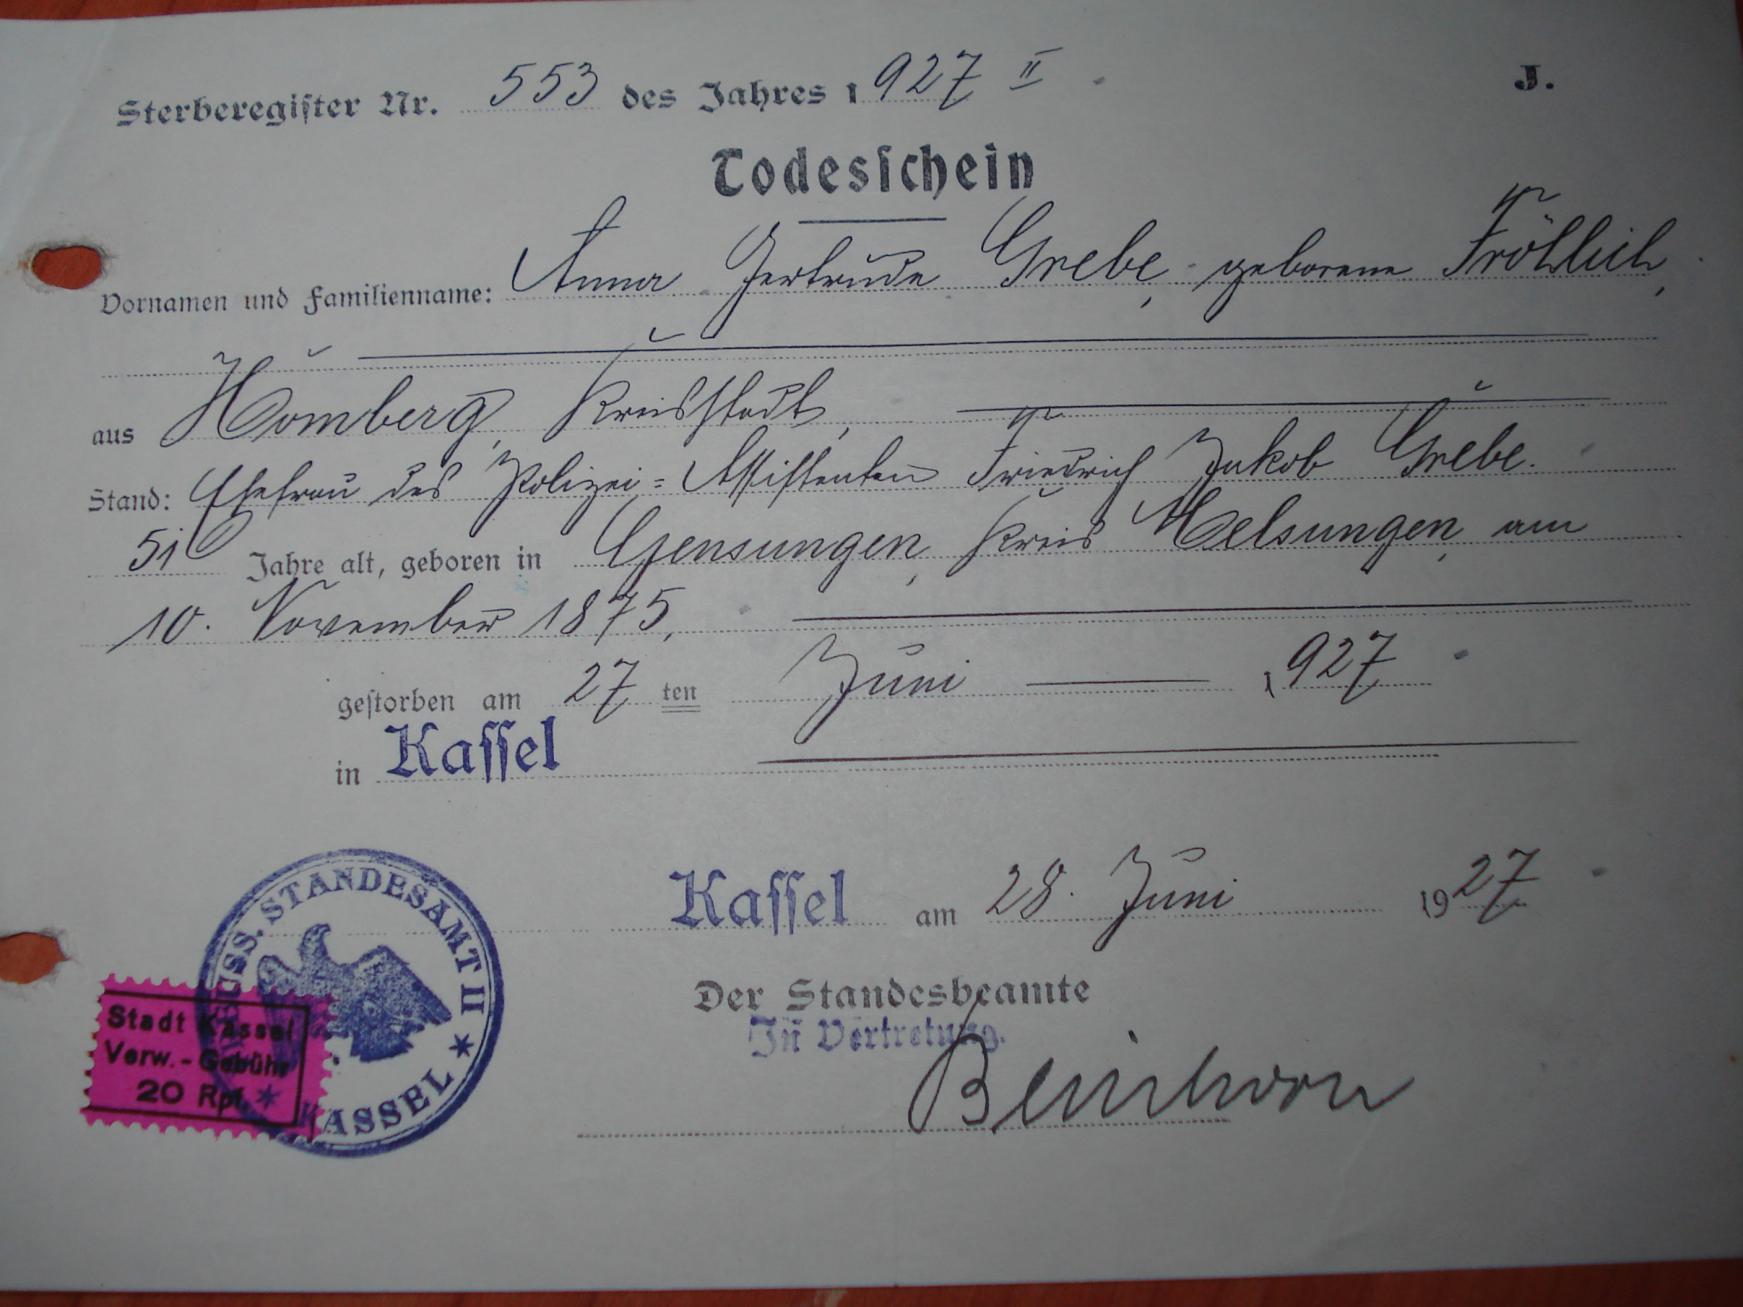 J.
Sterberegister Nr. 553 des Jahres 1927 II
Todesschein
Vornamen und Familienname: Anna Gertrude Grebe, geborene Fröhlich,
aus Homberg, Kreisstadt,
Stand: Ehefrau des Polizei=Assistenten Friedrich Jakob Grebe.
51 Jahre alt, geboren in Gensungen, Kreis Melsungen, am
10. November 1875,
gestorben am 27 ten Juni 1927
in Kassel
Kassel am 28. Juni 1927
Der Standesbeamte
In Vertretung.
PREUSS. STANDESAMT II
KASSEL
Stadt Kassel
Verw.-Gebühr
20 Rpf.